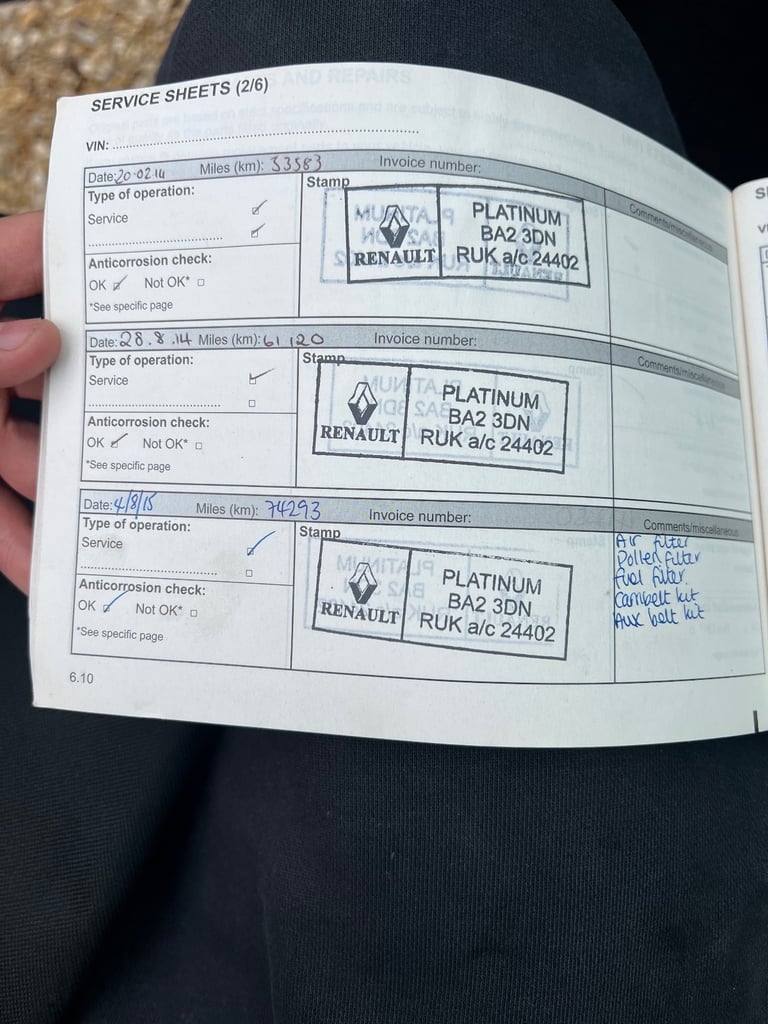 SERVICE SHEETS (2/6)
VIN:
Date: 20-02-14 Miles (km): 33583 Invoice number:
Type of operation:
Service
Anticorrosion check:
OK Not OK*
*See specific page
Stamp
RENAULT
PLATINUM
BA2 3DN
RUK a/c 24402
Comments/miscellaneous
Date: 28.8.14 Miles (km): 61,120 Invoice number:
Type of operation:
Service
Anticorrosion check:
OK Not OK*
*See specific page
Stamp
RENAULT
PLATINUM
BA2 3DN
RUK a/c 24402
Comments/miscellaneous
Date: 4/8/15 Miles (km): 74293 Invoice number:
Type of operation:
Service
Anticorrosion check:
OK Not OK*
*See specific page
Stamp
RENAULT
PLATINUM
BA2 3DN
RUK a/c 24402
Comments/miscellaneous
Air filter
Pollen filter
fuel filter.
Cambelt kit
Aux belt kit
6.10